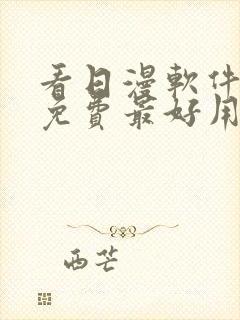 看日漫軟件
免費最好用
西芒